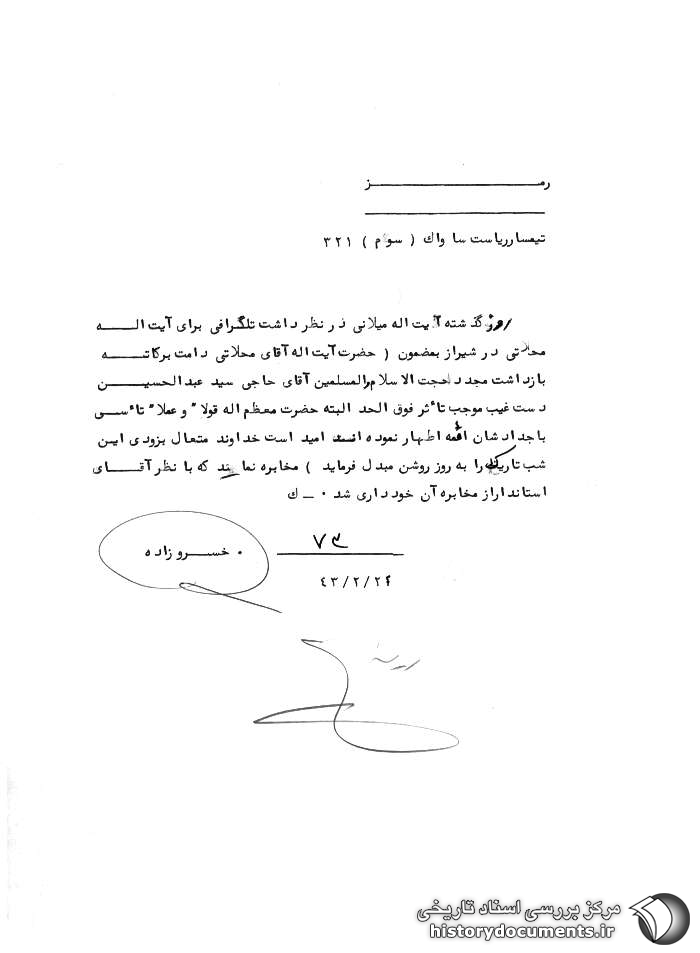 رمز
تیمسار ریاست ساواک ( سوم ) ۳۲۱
روز گذشته آیت اله میلانی در نظر داشت تلگرافی برای آیت اله
محلاتی در شیراز بمضمون ( حضرت آیت اله آقای محلاتی دامت برکاته
بازداشت مجدد حجت الاسلام والمسلمین آقای حاجی سید عبدالحسین
دست غیب موجب تأثر فوق الحد البته حضرت معظم اله قولا" و عملا" تأسی
باجدادشان اظهار نموده امید است خداوند متعال بزودی این
شب تاریک را به روز روشن مبدل فرماید ) مخابره نمایند که با نظر آقای
استاندار از مخابره آن خودداری شد ۰ ـ ك
۷۳
۰ خسروزاده
۴۳/۲/۲۴
مرکز بررسی اسناد تاریخی
historydocuments.ir